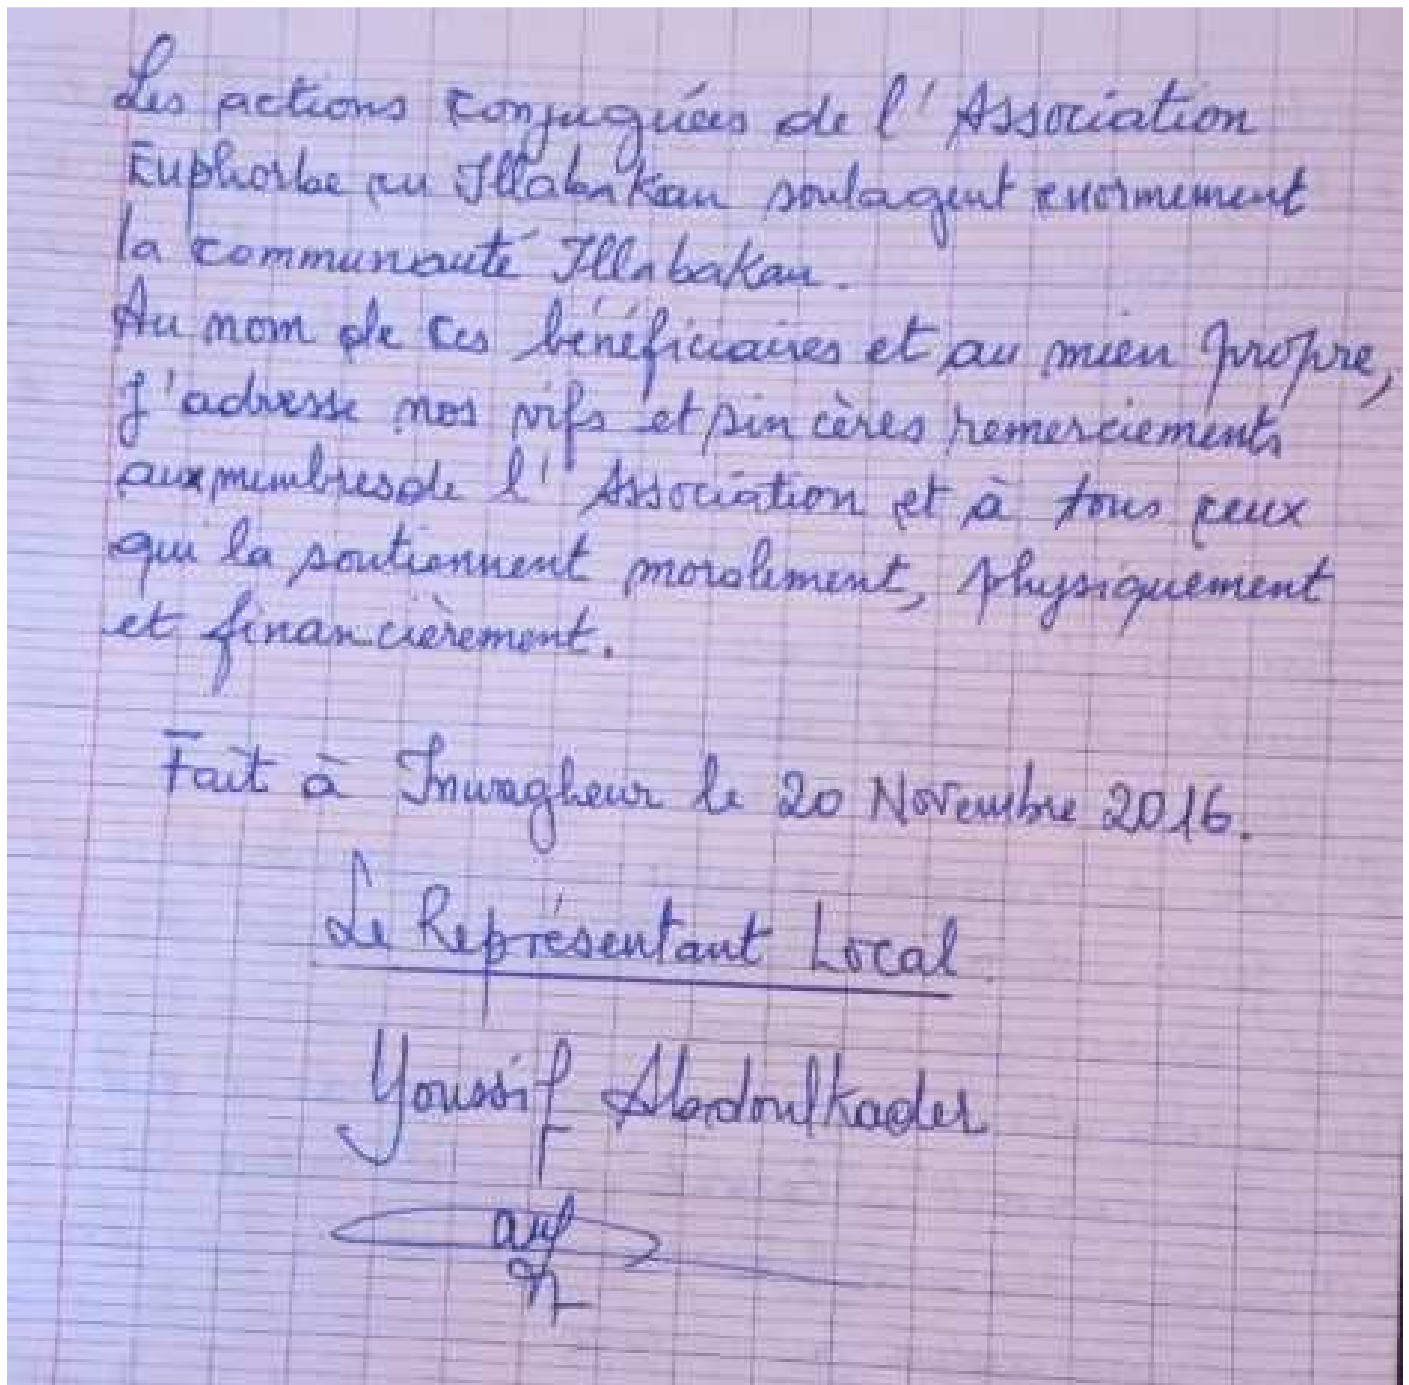 Les actions conjuguées de l'Association
Euphorbe en Illabakan soulagent enormement
la communauté Illabakan.
Au nom de ces bénéficiaires et au mien propre,
J'adresse nos vifs et sincères remerciements
aux membres de l'Association et à tous ceux
qui la soutiennent moralement, physiquement
et financièrement.
Fait à le 20 Novembre 2016.
Le Représentant Local
Youssif Abdoulkader